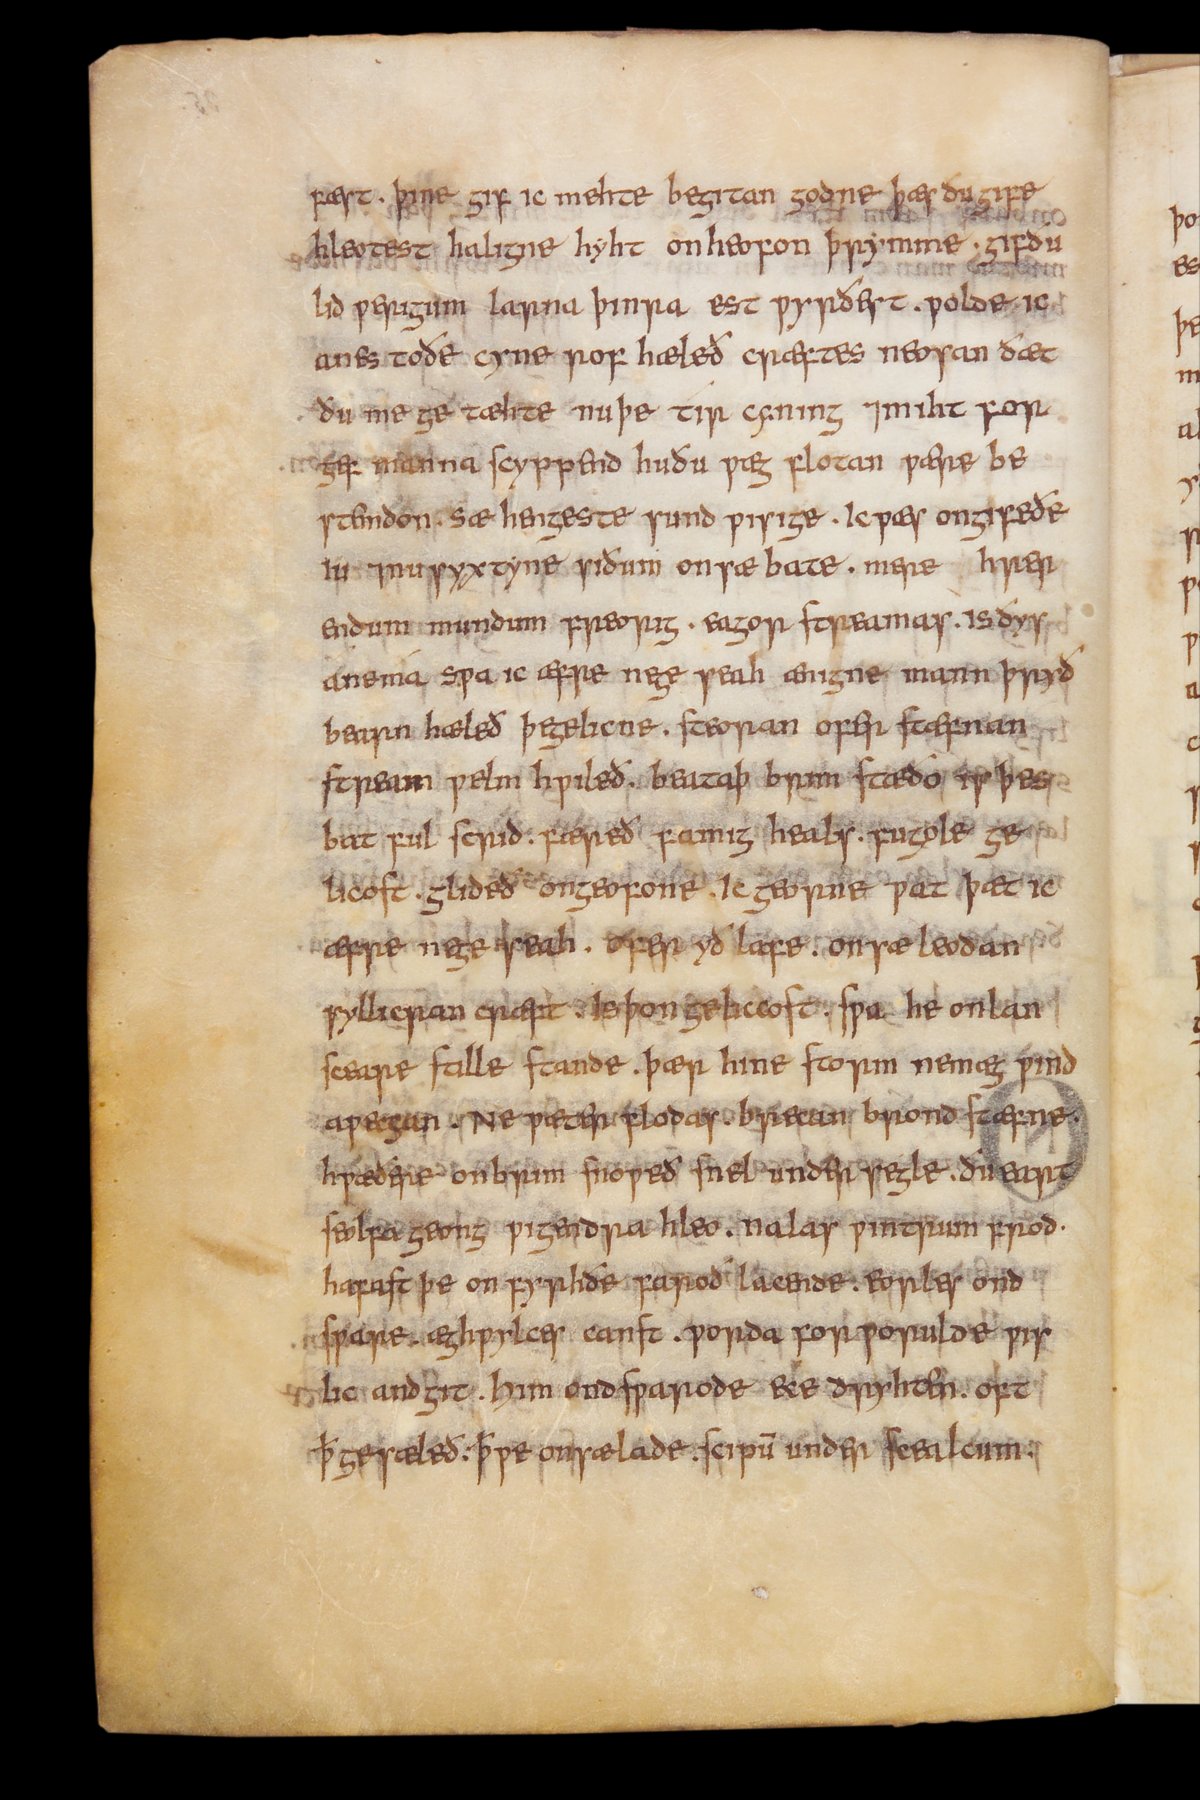 fæst . þine gif ic mehte begitan godne þæs ðu gife
hleotest haligne hyht on heofon þrymme . gif ðu
lid ƿerigum larna þinra est ƿyrðest . ƿolde ic
anes to ðe cyne rof hæleð cræftes neosan ðæt
ðu me ge tæhte nu þe tir cyning ⁊ miht for
gef manna scyppend hu ðu ƿæg flotan ƿære be
stemdon . sæ hengeste sund ƿisige . Ic ƿæs on gifeðe
iu ⁊ nu syxtyne siðum on sæ bate . mere hrer
endum mundum freorig . eagor streamas . is ðys
ane má sƿa ic æfre ne ge seah ænigne mann þryð
bearn hæleð þe gelicne . steoran ofer stæfnan
stream ƿelm hƿileð . beataþ brim stæðo is þes
bat ful scrid . færeð famig heals . fugole ge
licost . glideð on geofone . Ic georne ƿat þæt ic
æfre ne ge seah . ofer yð lafe . on sæ leodan
syllicran cræft . Is þon geliccost . sƿa he on lan
sceare stille stande . þær hine storm ne mæg ƿind
aƿecgan . Ne ƿæter flodas . brecan brond stæfne .
hƿæðere on brim snoƿeð snel under segle . ðu eart
seolfa geong ƿigendra hleo . nalas ƿintrum frod .
hafast þe on fyrhðe faroð lacende . eorles ond
sƿare . æghƿylces canst . ƿorda for ƿorulde ƿis
lic andgit . Him ondsƿarode ece dryhten . oft
ꝥ gesæleð . ꝥ ƿe on sælade . scipū under scealcum .